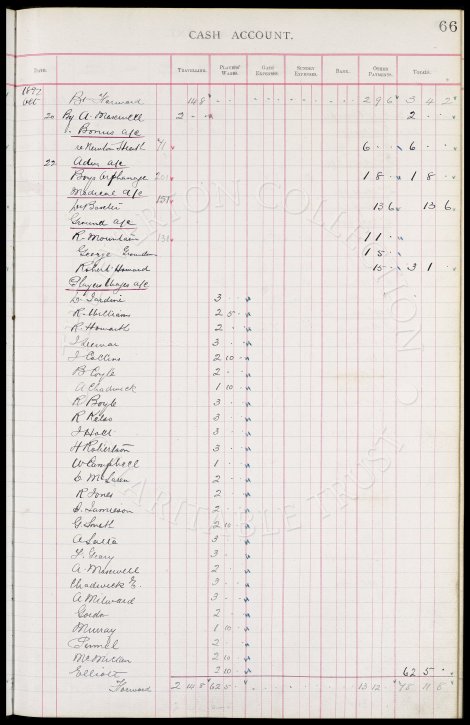 66
CASH ACCOUNT.
DATE. TRAVELLING. PLAYERS' WAGES. GATE EXPENSES. SUNDRY EXPENSES. BANK. OTHER PAYMENTS. TOTALS.
1897
Oct Bt. Forward 14 8 2 9 6 3 4 2
20 By A. Maxwell 2 - - 2 - -
Bonus a/c
re Newton Heath 71 6 - - 6 - -
22 Advn. a/c
Boys Orphanage 201 1 8 - 1 8 -
Medical a/c
Dr Baxter 151 13 6 13 6
Ground a/c
R. Mountain 131 1 1 -
George 1 5 -
Robert Howard 15 - 3 1 -
Players Wages a/c
D. Jardine 3 - -
R. Williams 2 5 -
R. Howarth 2 - -
3 - -
J Collins 2 10 -
B Coyle 2 - -
A Chadwick 1 10 -
R Boyle 3 - -
R Kelso 3 - -
J Holt 3 - -
H Robertson 3 - -
W Campbell 1 - -
D. McLaren 2 - -
R Jones 2 - -
Jamieson 2 - -
G. Smith 2 10 -
3 - -
Geary 3 - -
A. Maxwell 2 - -
Chadwick E. 3 - -
A Milward 3 - -
Gordon 2 - -
Murray 1 10 -
2 - -
McMillan 2 10 -
Elliott 2 10 - 62 5 -
Forward 2 14 8 62 5 - 13 12 - 75 11 8
EVERTON COLLECTION
CHARITABLE TRUST